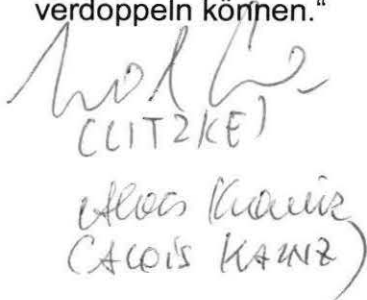 verdoppeln können.“
(LITZKE)
Alois Kainz
(ALOIS KAINZ)